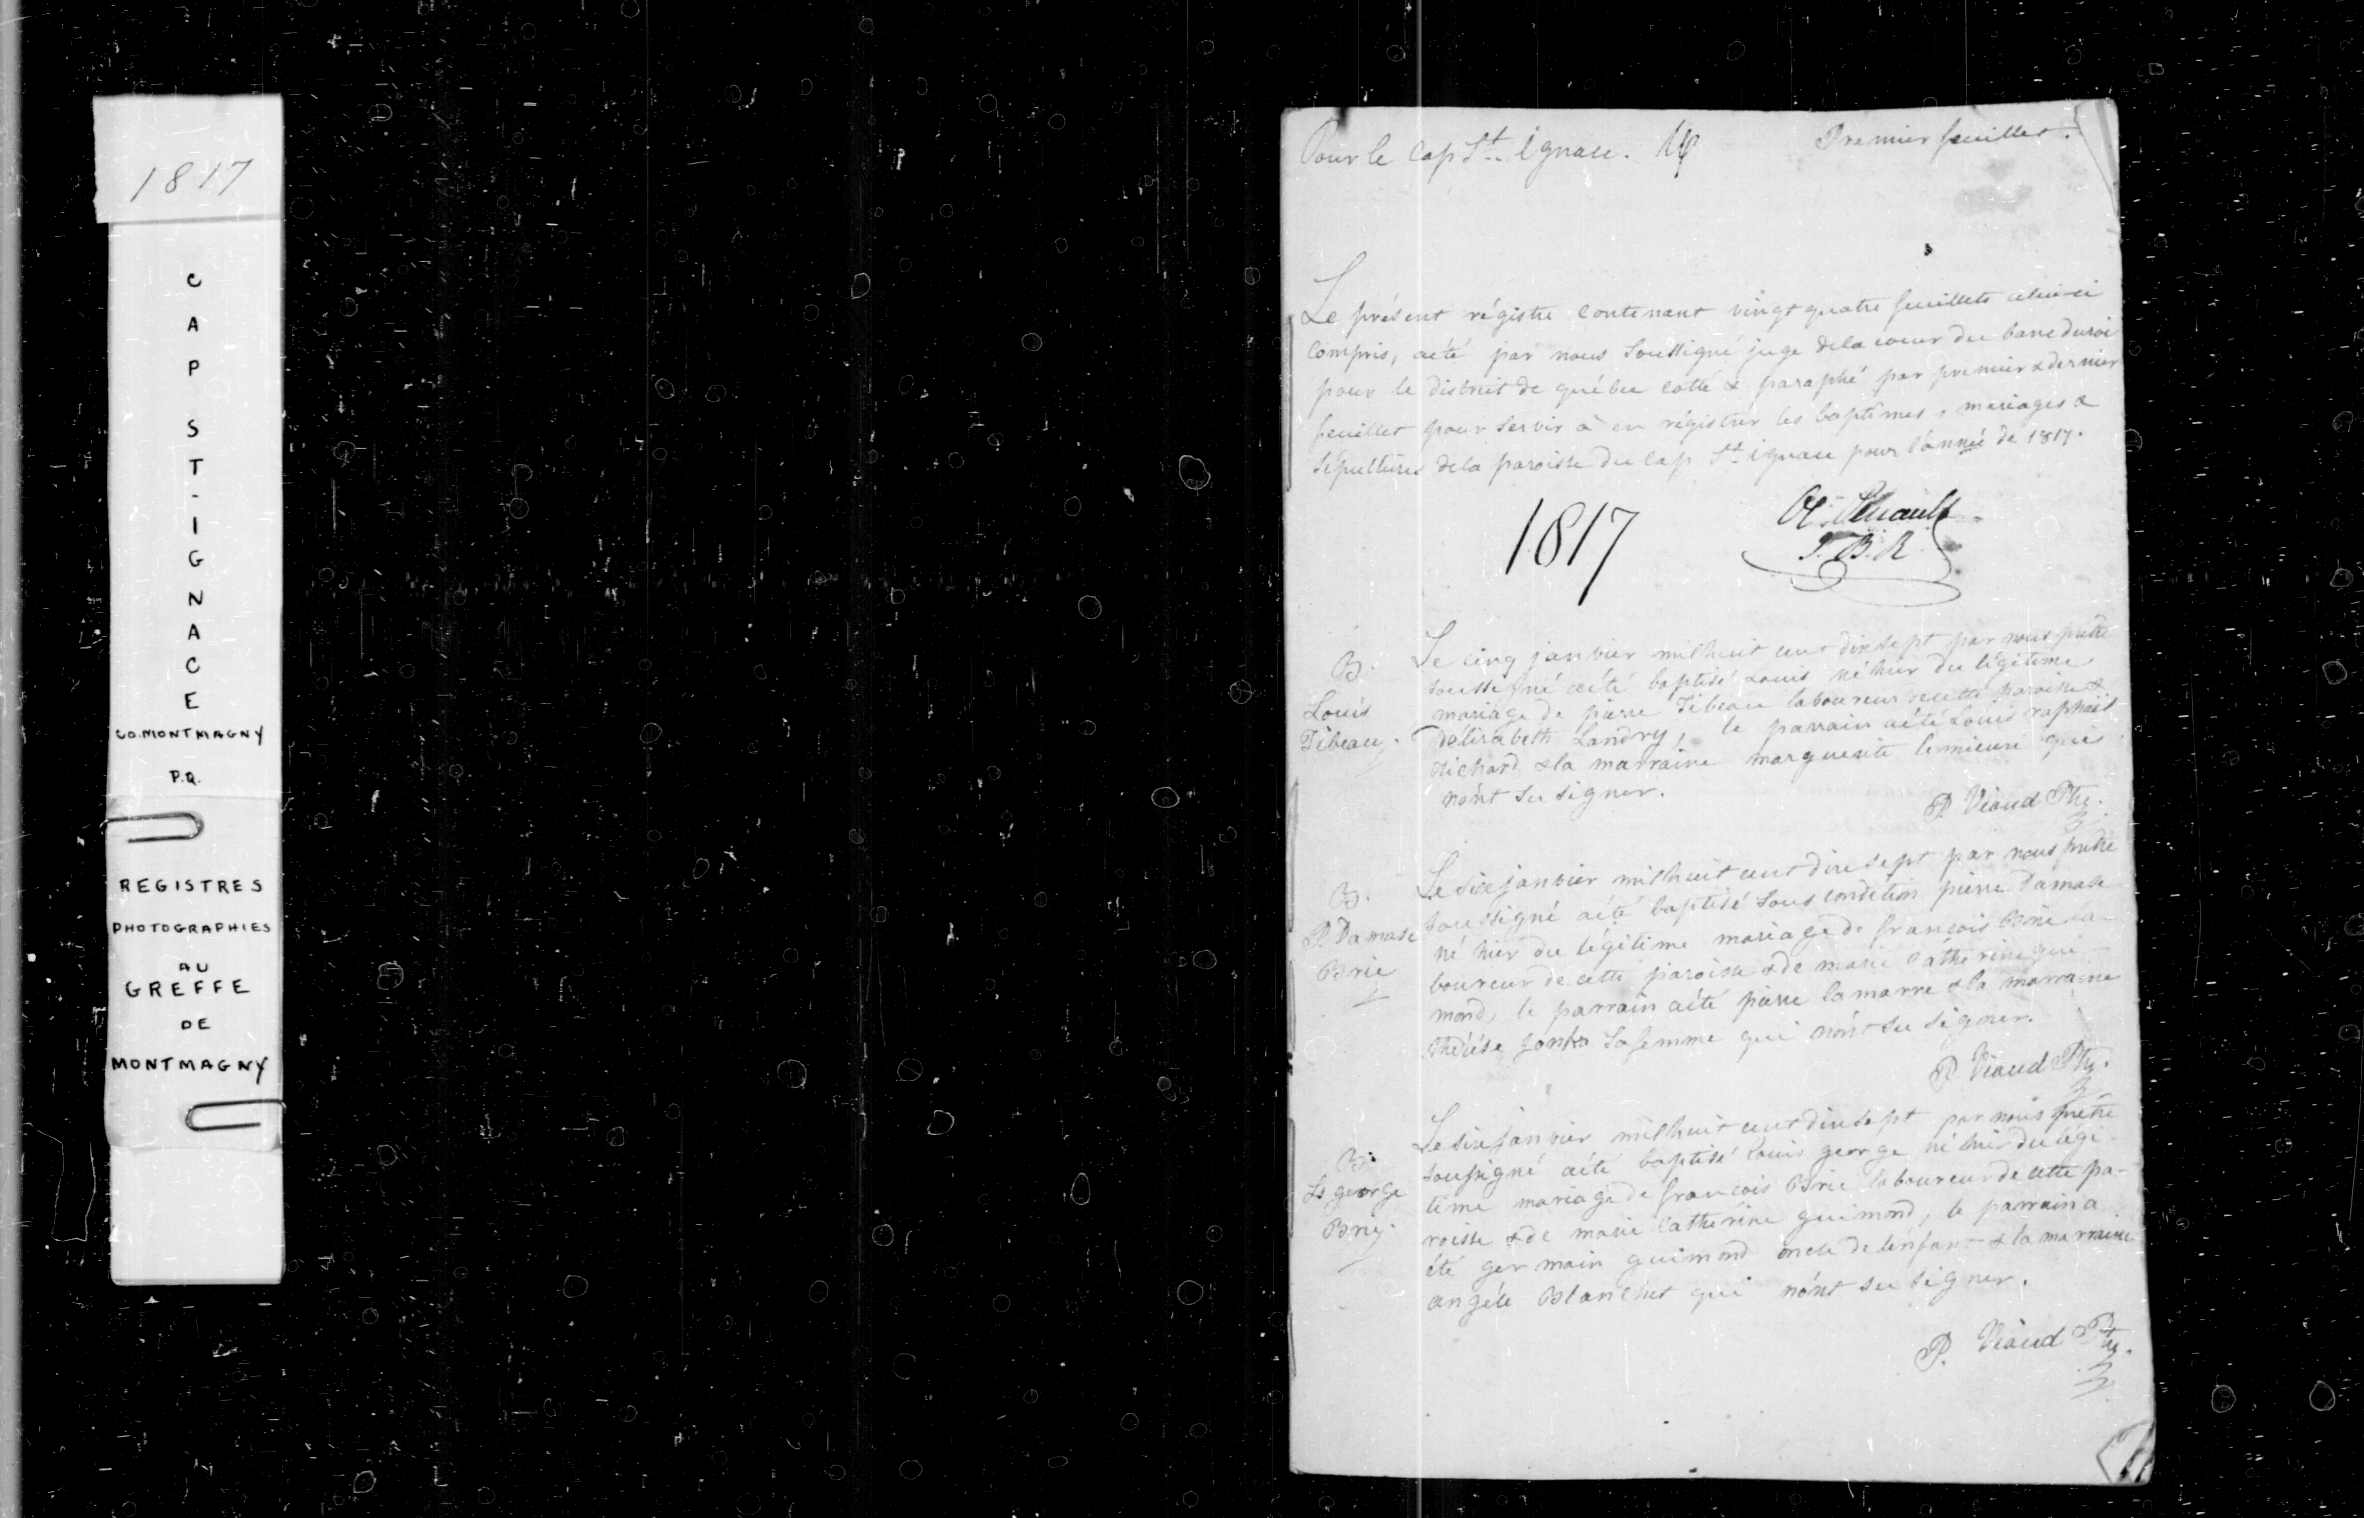 1817
CAP ST-IGNACE
CO. MONTMAGNY
P.Q.
REGISTRES
PHOTOGRAPHIES
AU
GREFFE
DE
MONTMAGNY
Pour le Cap St. ignace.
Premier feuillet.
Le présent régistre contenant vingt quatre feuillets celui-ci
compris, aété par nous soussigné juge dela cour du banc du roi
pour le district de québec cotté & paraphé par premier & dernier
feuillet pour servir à en régistrer les baptêmes, mariages &
sépultures dela paroisse du Cap St. ignace pour l'année de 1817.
1817
J.B.R
B.
Louis
Tibeau.
Le cinq janvier mil huit cent dix sept par nous prêtre
soussigné aété baptisé Louis né hier du légitime
mariage de pierre Tibeau laboureur de cette paroisse &
d'elisabeth Landry, le parrain aété Louis raphaël
richard & la marraine marguerite lemieux qui
n'ont su signer.
P. Viaud Ptr.
B.
P. Damase
Brie
Le six janvier mil huit cent dix sept par nous prêtre
soussigné aété baptisé sous condition pierre Damase
né hier du légitime mariage de françois Brie la-
boureur de cette paroisse & de marie Catherine gui
mond, le parrain aété pierre lamarre & la marraine
thérése sa femme qui n'ont su signer.
P. Viaud Ptr.
B.
Ls george
Brie.
Le six janvier mil huit cent dix sept par nous prêtre
soussigné aété baptisé Louis george né hier du légi-
time mariage de françois Brie laboureur de cette pa-
roisse & de marie Catherine guimond, le parrain a
été germain guimond oncle de l'enfant & la marraine
angéle Blanchet qui n'ont su signer.
P. Viaud Ptr.